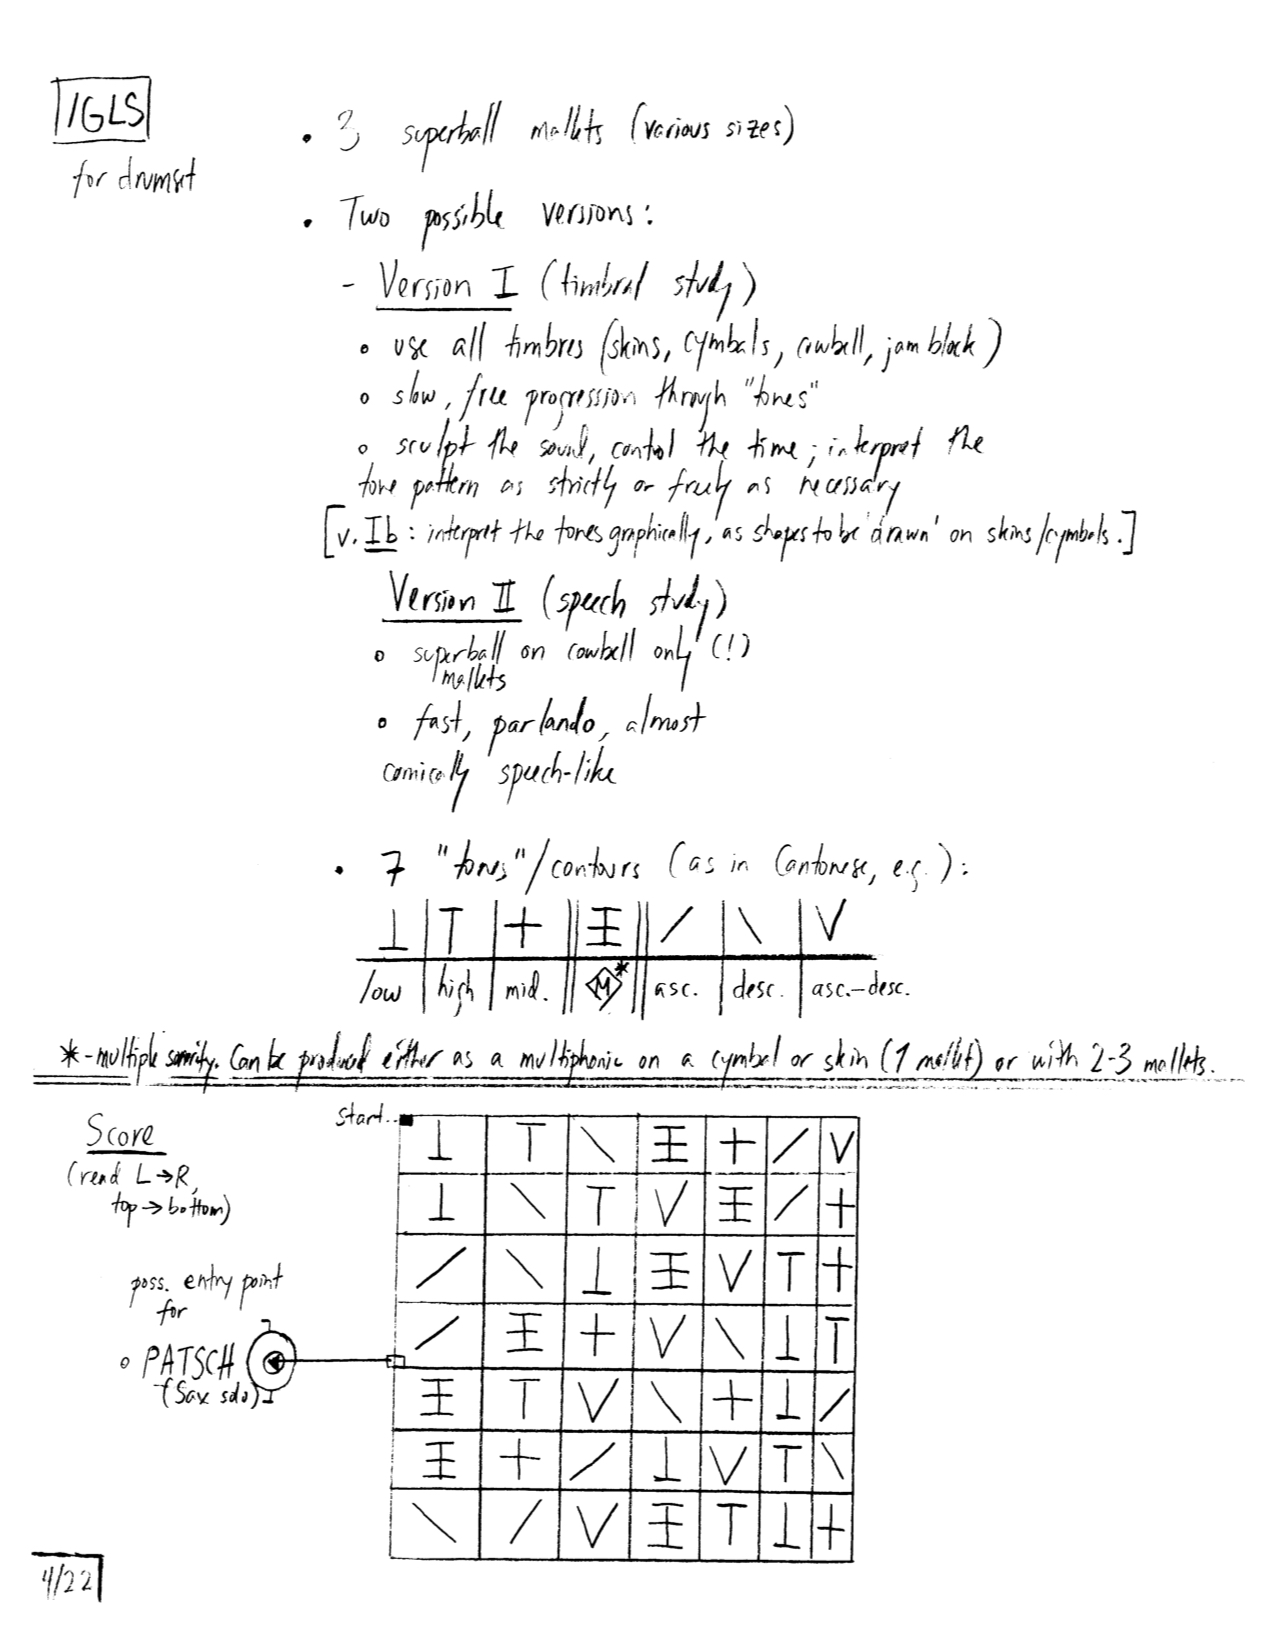 IGLS
for drumset
• 3 superball mallets (various sizes)
• Two possible versions:
- Version I (timbral study)
o use all timbres (skins, cymbals, cowbell, jam block)
o slow, free progression through "tones"
o sculpt the sound, control the time; interpret the
tone pattern as strictly or freely as necessary
[v. Ib: interpret the tones graphically, as shapes to be 'drawn' on skins/cymbals.]
Version II (speech study)
o superball on cowbell only (!)
mallets
o fast, parlando, almost
comically speech-like
• 7 "tones"/contours (as in Cantonese, e.g.):
⊥ | T | + || 王 || / | \ | V
low | high | mid. || M* || asc. | desc. | asc.-desc.
*-multiple sonority. Can be produced either as a multiphonic on a cymbal or skin (1 mallet) or with 2-3 mallets.
start..
Score
(read L→R,
top→bottom)
⊥ T \ 王 + / V
⊥ \ T V 王 / +
/ \ ⊥ 王 V T +
/ 王 + V \ ⊥ T
王 T V \ + ⊥ /
王 + / ⊥ V T \
\ / V 王 T ⊥ +
poss. entry point
for
o PATSCH
(Sax solo)
4/22